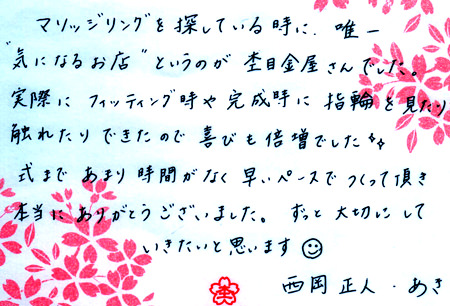 マリッジリングを探している時に、唯一
"気になるお店"というのが杢目金屋さんでした。
実際にフィッティング時や完成時に指輪を見たり
触れたりできたので喜びも倍増でした
式まであまり時間がなく早いペースでつくって頂き
本当にありがとうございました。ずっと大切にして
いきたいと思います
西岡正人・あき